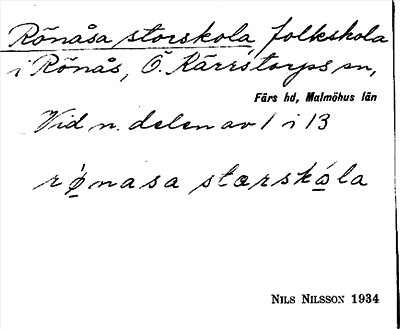 Rönåsa storskola, folkskola
i Rönås, Ö. Kärrstorps sn,
Färs hd, Malmöhus län
Vid n. delen av 1 i 13
rø̀nasa stœrskǫ́la
NILS NILSSON 1934